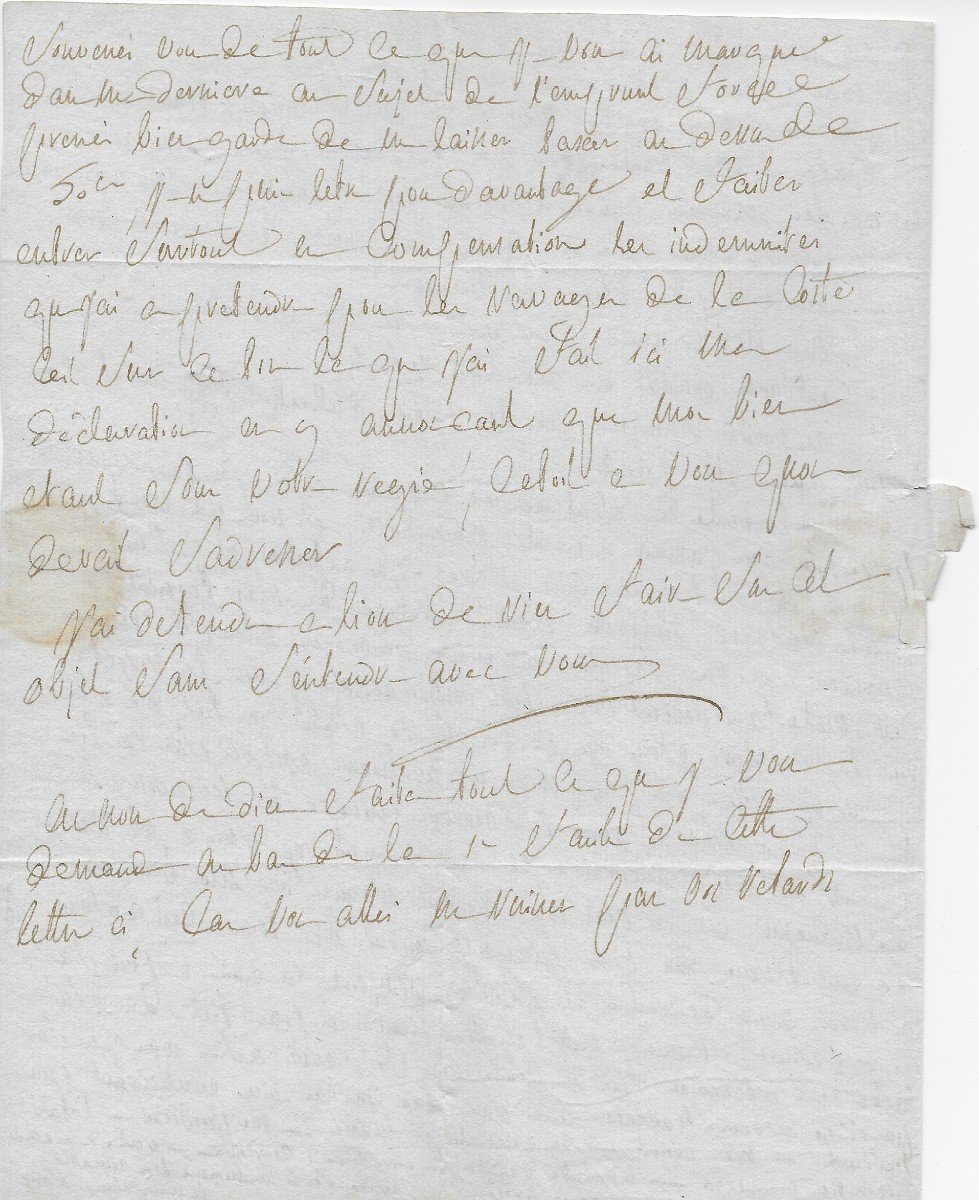 Souvenés vou de tout ce que j vou ai marqué
dan ma derniere au sujet de l'emprunt forcé
prenés bien garde de m laisser taxer au dessu de
50
entrer surtout en compensation les indemnités
que j'ai a pretendre pour les ravages de la Coste
j'ai fait ici ma
déclaration en y annoncant que mon bien
etant sou votre regie, cetoit a vou quon
devoit sadresser
j'ai defendu a lion de rien faire sur cet
objet san s'entendre avec vou
au nom de dieu faite tout ce que j vou
demande au ba de la 1re de cette
lettre ci, car vou allés m ruiner par vos retards